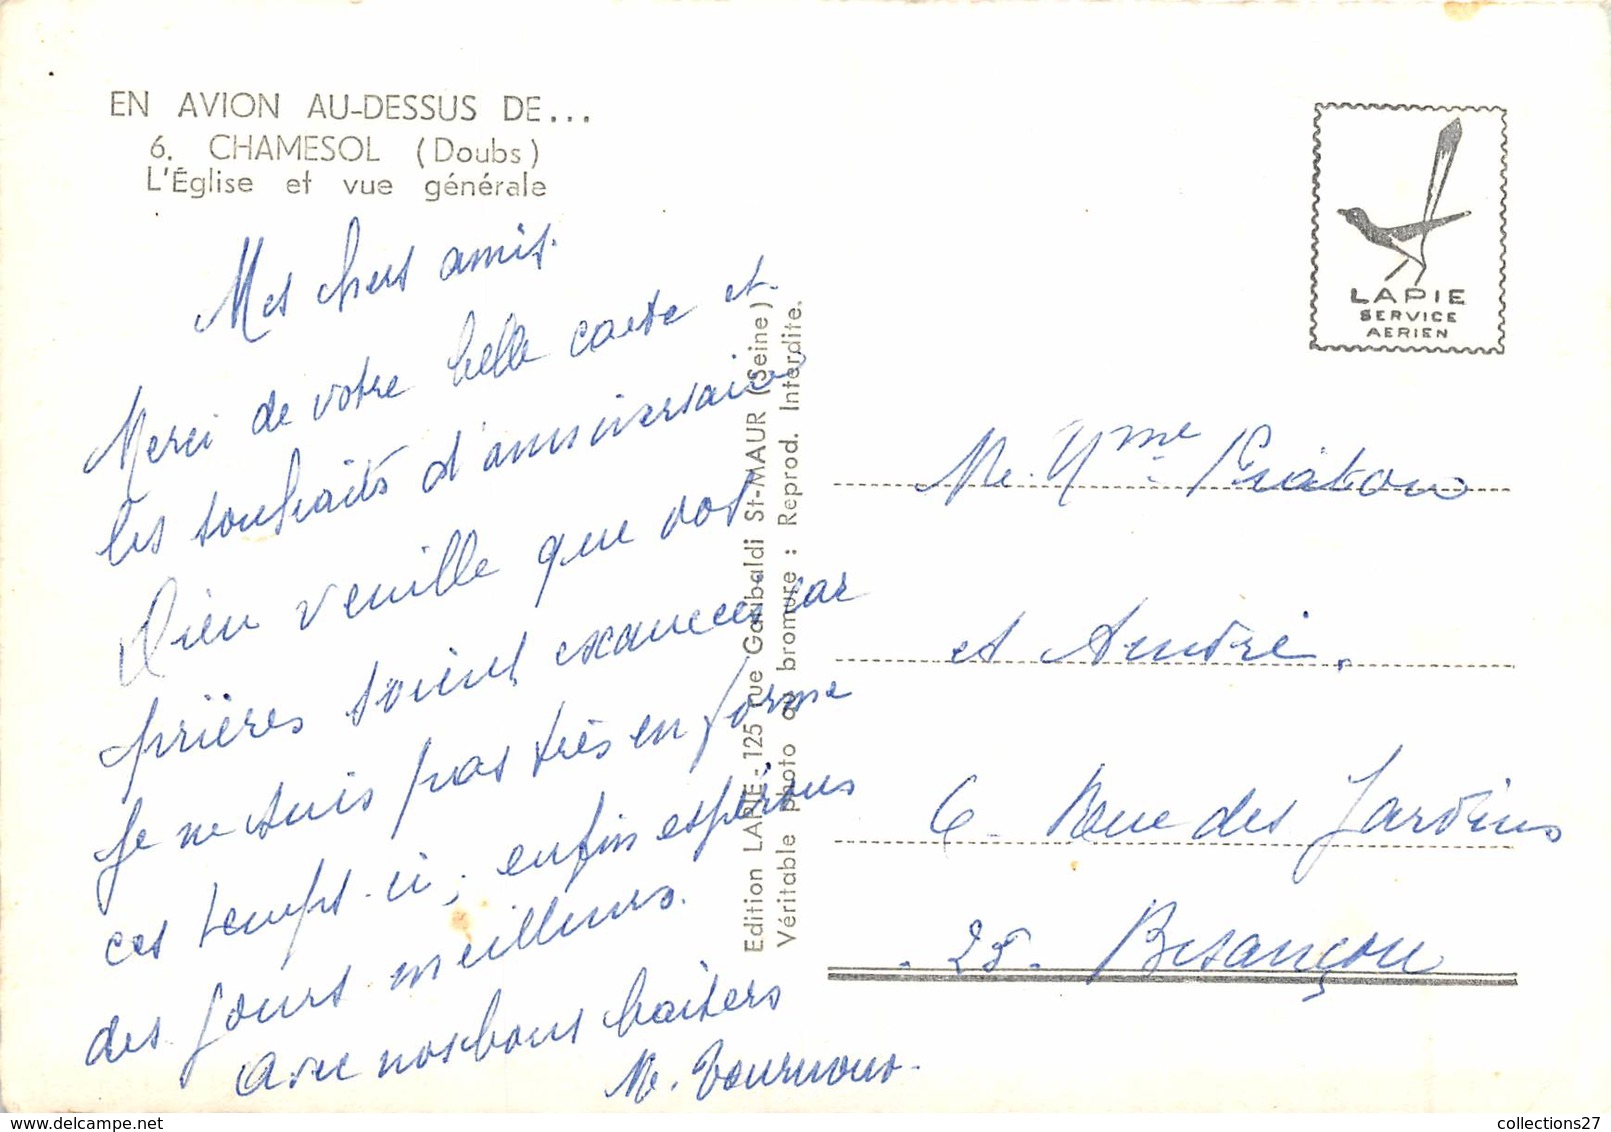 EN AVION AU-DESSUS DE...
6. CHAMESOL (Doubs)
L'Église et vue générale
Mes chers amis.
Merci de votre belle carte et
les souhaits d'anniversaire
Dieu veuille que vos
prières soient exaucées car
Je ne suis pas très en forme
ces temps-ci, enfin espérons
des jours meilleurs.
Avec nos bons baisers
M. Tournoux.
Edition LAPIE - 125 rue Garibaldi St-MAUR (Seine)
Véritable photo au bromure : Reprod. Interdite.
LAPIE
SERVICE
AERIEN
M. Mme
et André.
6 - Rue des Jardins
25 - Besançon
collections27